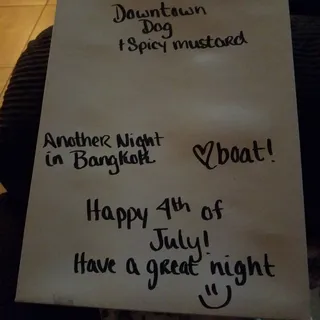 Downtown
Dog
+ Spicy mustard
Another Night
in Bangkok
♡boat!
Happy 4th of
July!
Have a great night